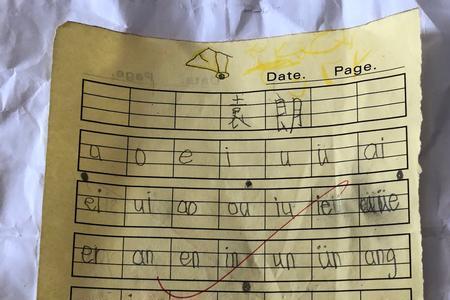 Date. Page.
袁 朗
a o e i u ü ai
ei ui ao ou iu ie üe
er an en in un ün ang